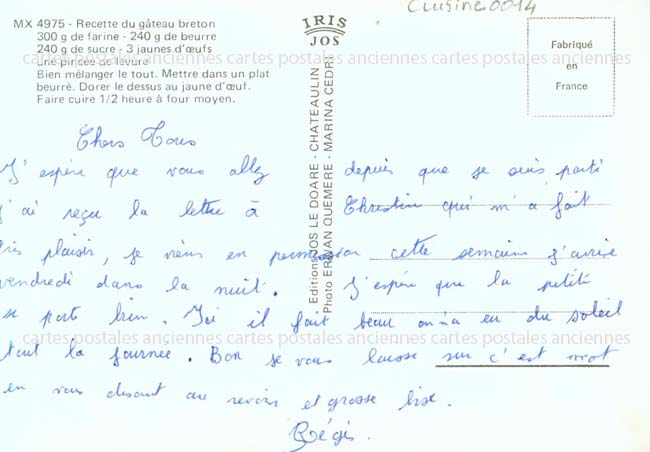 Cuisine0014
MX 4975 - Recette du gâteau breton
300 g de farine - 240 g de beurre
240 g de sucre - 3 jaunes d'œufs
Une pincée de levure
Bien mélanger le tout. Mettre dans un plat
beurré. Dorer le dessus au jaune d'œuf.
Faire cuire 1/2 heure à four moyen.
IRIS
JOS
Editions JOS LE DOARE - CHATEAULIN
Photo ERWAN QUEMERE - MARINA CEDRI
Fabriqué
en
France
cartes postales anciennes cartes postales anciennes cartes postales anciennes
Chers Tous
J'espère que vous allez depuis que je suis parti
j'ai reçu la lettre à Christin qui m'a fait
très plaisir, je viens en permission cette semaine j'arrive
vendredi dans la nuit. J'espère que la petite
se porte bien. Ici il fait beau on a eu du soleil
cartes postales anciennes cartes postales anciennes cartes postales anciennes
tout la journée. Bon je vous laisse sur c'est mot
en vous disant au revoir et grosse bise.
Régis.